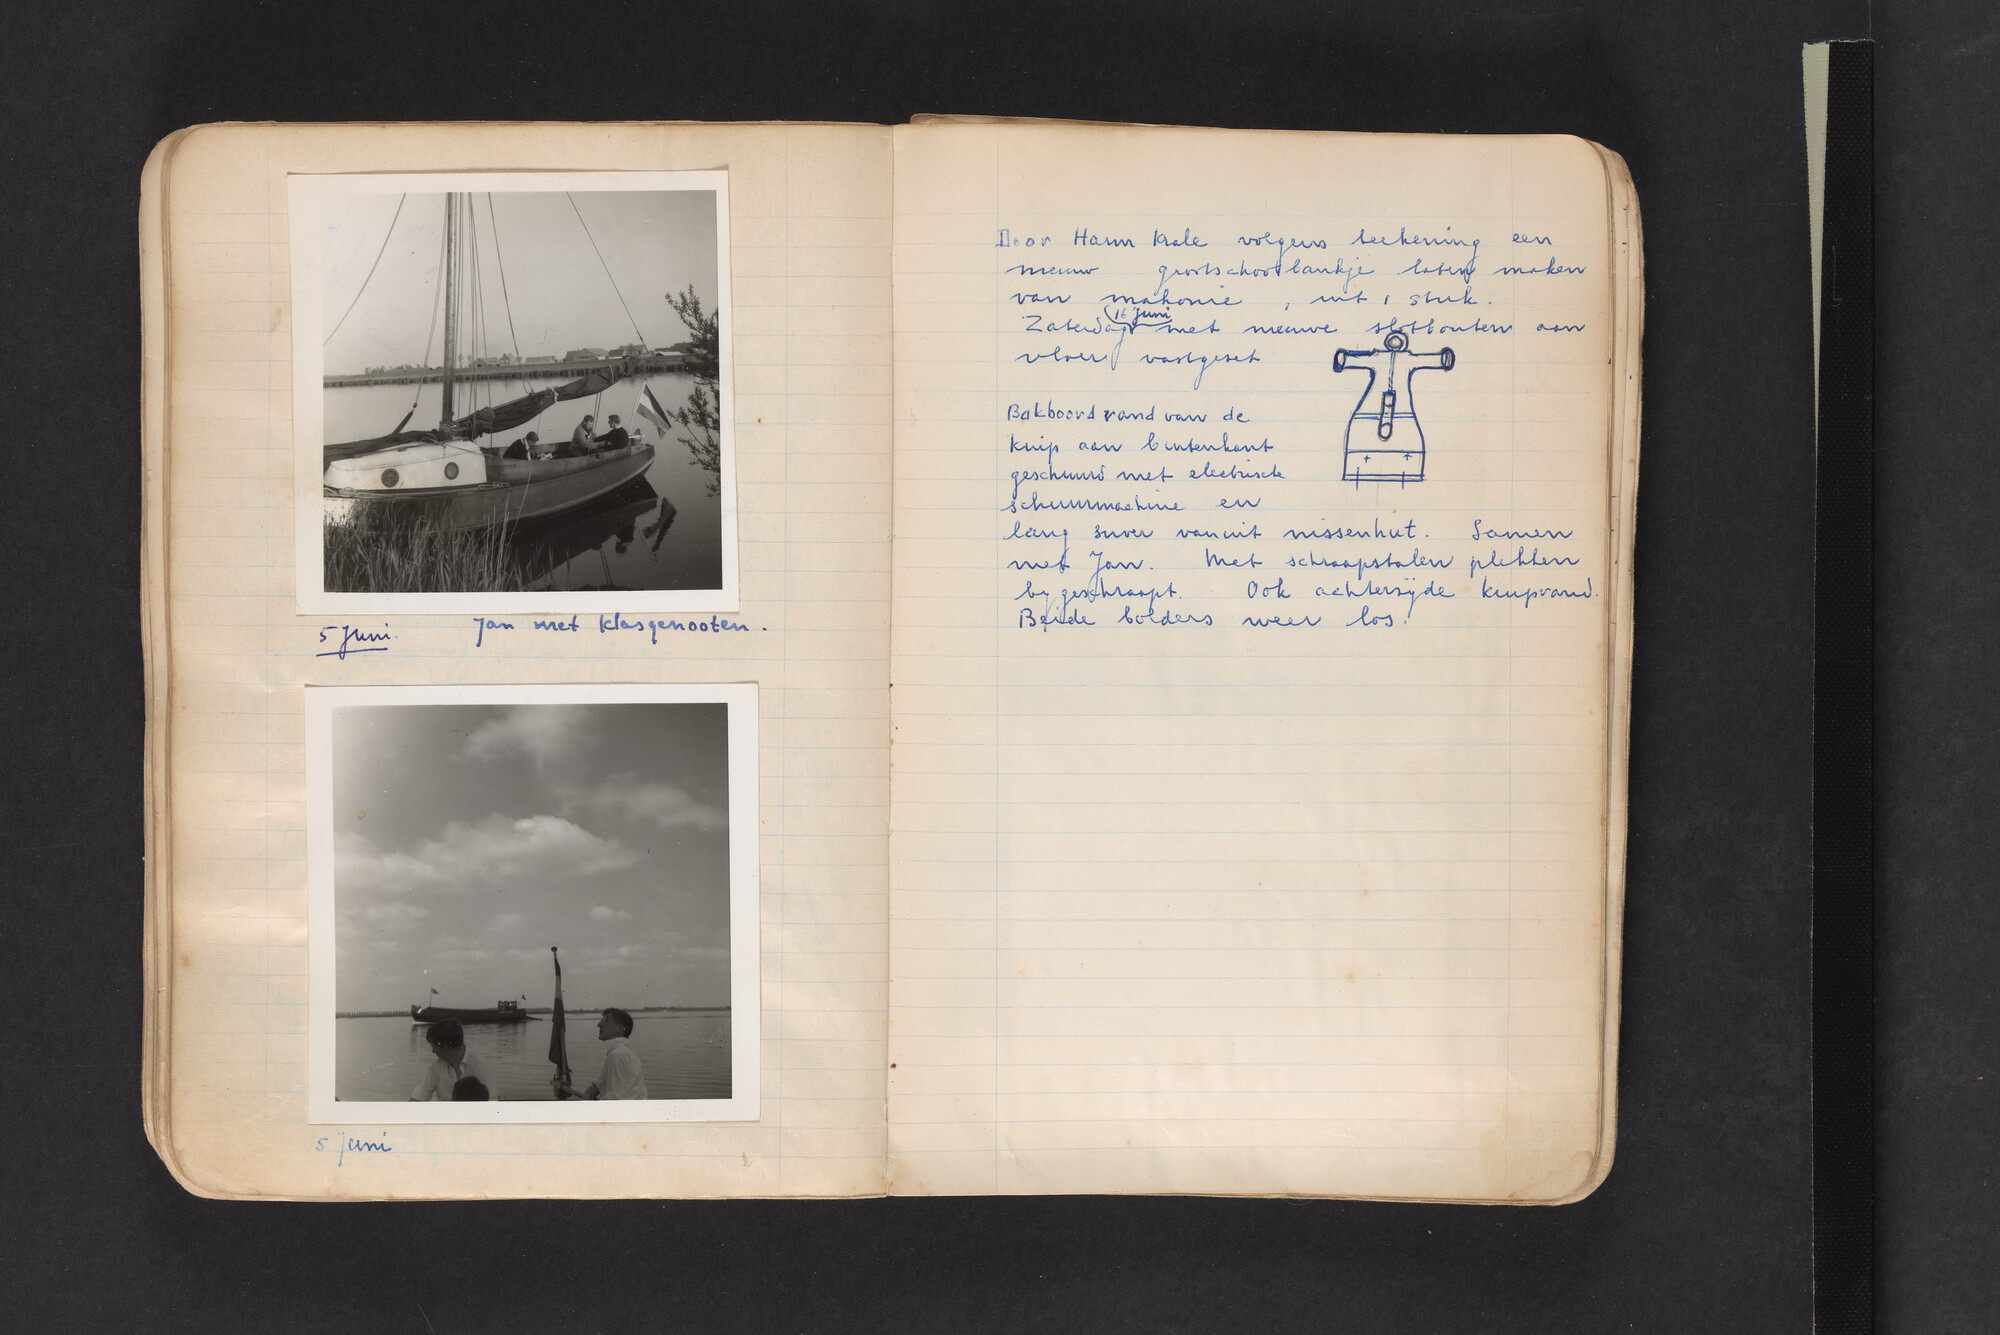 5 Juni.
Jan met klasgenooten.
5 Juni
Door Harm Krale volgens teekening een
nieuw grootschootbankje laten maken
van mahonie, uit 1 stuk.
Zaterdag (16 Juni met nieuwe slotbouten aan
vloer vastgezet
Bakboord rand van de
kuip aan buitenkant
geschuurd met electrische
schuurmachine en
lang snoer vanuit nissenhut. Samen
met Jan. Met schraapstalen plekken
bygeschraapt. Ook achterzyde kuiprand.
Beide bolders weer los.